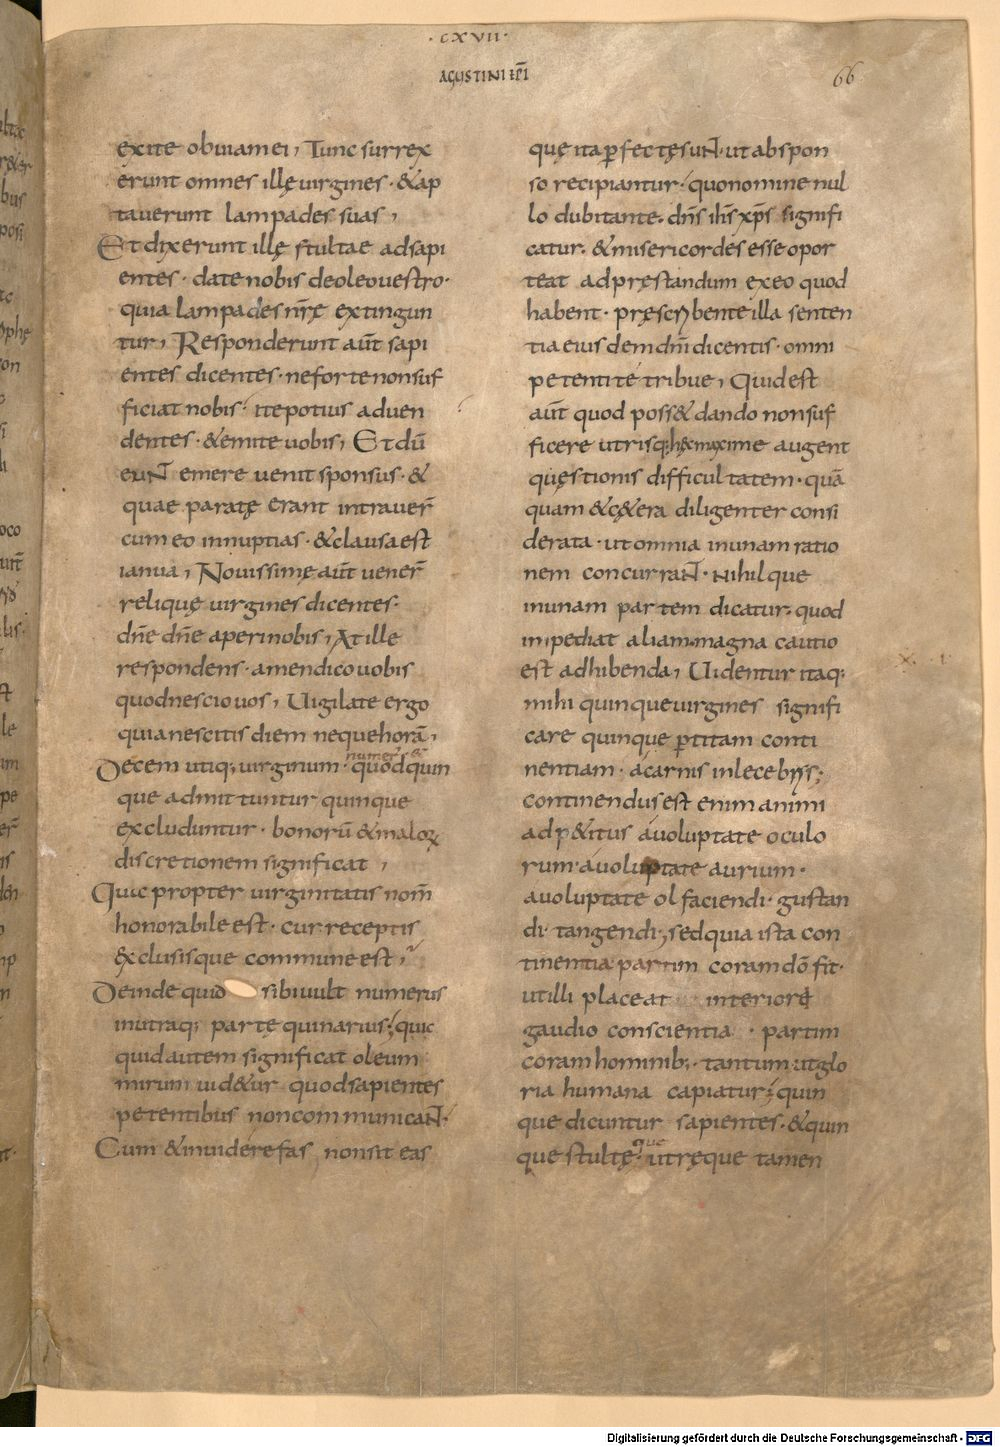 ·CXVII·
AGUSTINI EP̄I
66
exite obviam ei, Tunc surrex
erunt omnes illę virgines · & ap
taverunt lampades suas,
Et dixerunt illę stultae ad sapi
entes · date nobis de oleo vestro ·
quia lampades nr̄ę extingun
tur, Responderunt aūt sapi
entes dicentes · ne forte non suf
ficiat nobis · ite potius ad ven
dentes · & emite vobis, Et dū
euNT emere venit sponsus · &
quae paratę erant intraver̄
cum eo in nuptias · & clausa est
ianua, Novissimę aūt vener̄
reliquę virgines dicentes ·
dn̄e dn̄e aperi nobis, At ille
respondens · amen dico vobis
quod nescio vos, Vigilate ergo
quia nescitis diem neque horā,
numer &
Decem utiq; virginum · quod quin
que admittuntur quinque
excluduntur · bonorū & maloꝝ
discretionem significat,
Quic propter virginitatis nom̄
honorabile est · cur receptis
exclusisque commune est,
Deinde quid sibi vult numerus
in utraq; parte quinarius; quic
quid autem significat oleum
mirum vid&ur quod sapientes
petentibus non communicaNT ·
Cum & invidere fas non sit eas
quę ita ꝑfectę suNT · ut ab spon
so recipiantur · quo nomine nul
lo dubitante · dn̄s ih̄s xp̄s signifi
catur · & misericordes esse opor
teat ad pręstandum ex eo quod
habent · pręscribente illa senten
tia eiusdem dn̄i dicentis · omni
petenti te tribue, Quid est
aūt quod poss& dando non suf
ficere utrisq; hęc maxime augent
quęstionis difficultatem · quā
quam & c&era diligenter consi
derata · ut omnia in unam ratio
nem concurraNT · nihil que
in unam partem dicatur · quod
impediat aliam · magna cautio
est adhibenda, Videntur itaq;
mihi quinque virgines signifi
care quinque ꝑtitam conti
nentiam · a carnis inlecebris;
continendus est enim animi
adp&itus a voluptate oculo
rum · a voluptate aurium ·
a voluptate olfaciendi · gustan
di · tangendi, sed quia ista con
tinentia partim coram dō fit ·
ut illi placeat interiorę
gaudio conscientia · partim
coram hominib; · tantum ut glo
ria humana capiatur; quin
que dicuntur sapientes · & quin
que
que stultę · utręque tamen
Digitalisierung gefördert durch die Deutsche Forschungsgemeinschaft - DFG